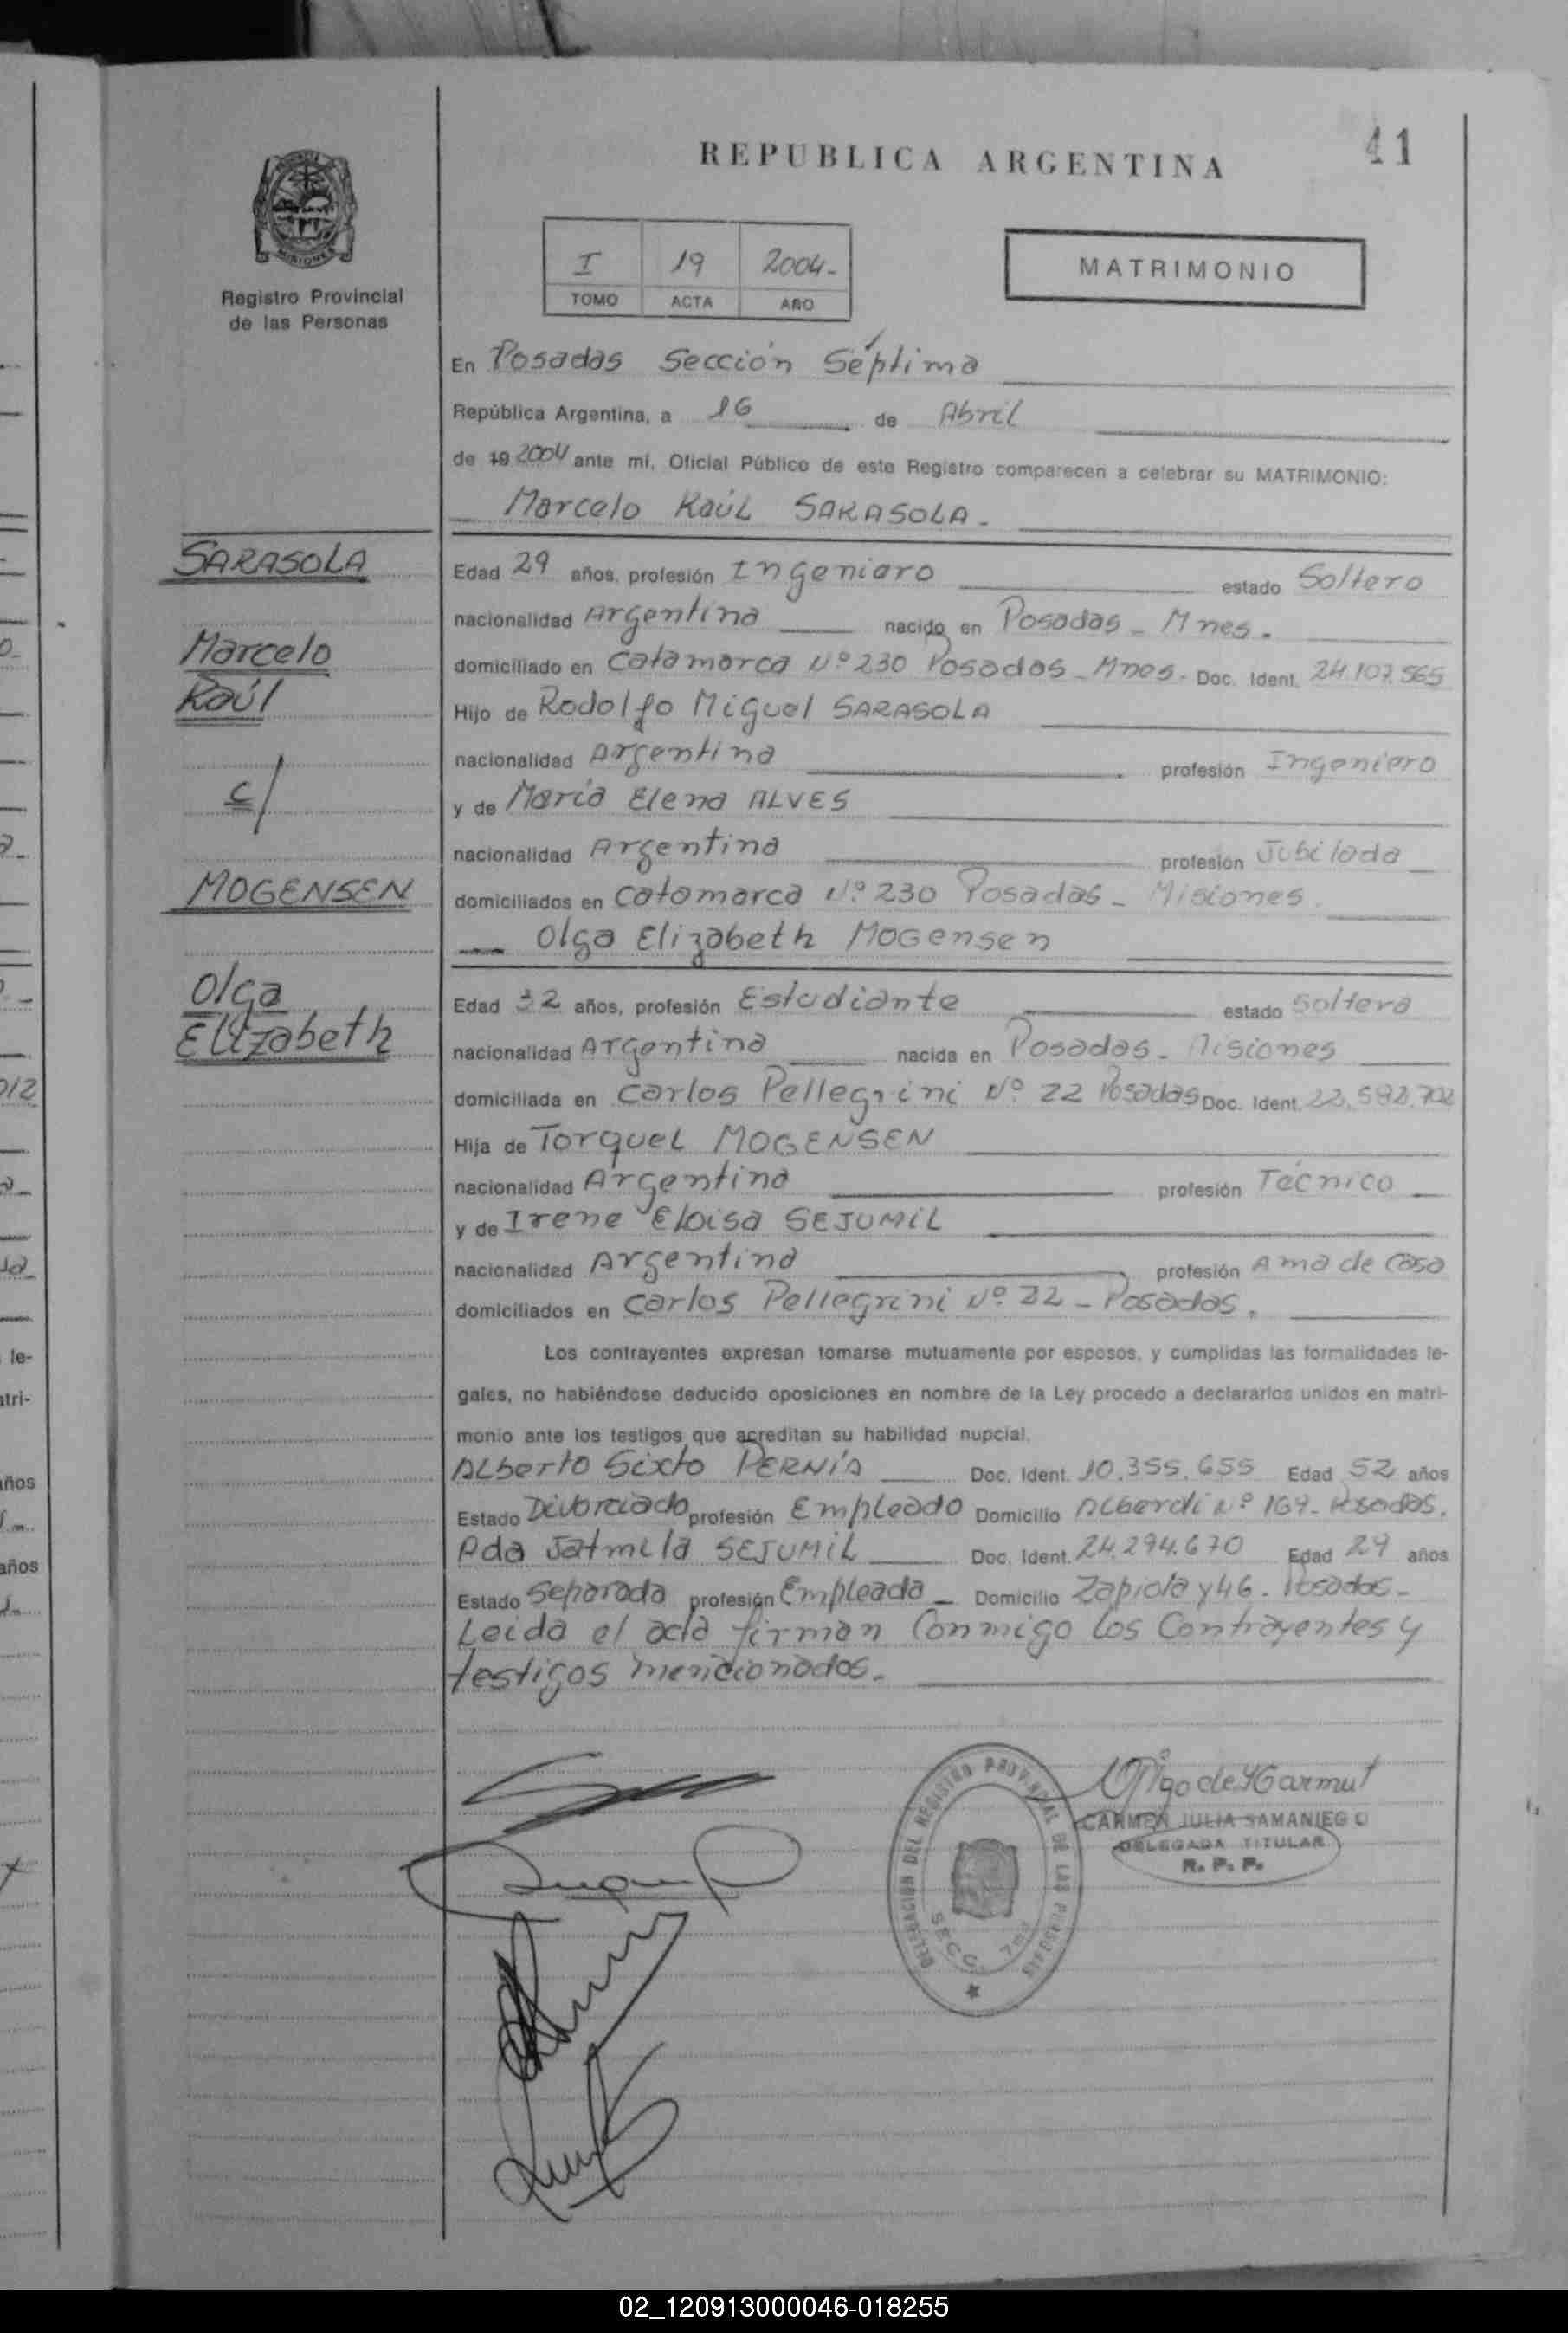 41
REPUBLICA ARGENTINA
MISIONES
Registro Provincial
de las Personas
I 19 2004-
TOMO ACTA AÑO
MATRIMONIO
En Posadas Sección Séptima
República Argentina, a 16 de Abril
de 19 2004 ante mí, Oficial Público de este Registro comparecen a celebrar su MATRIMONIO:
Marcelo Raúl SARASOLA.
SARASOLA
Marcelo
Raúl
c/
MOGENSEN
Olga
Elizabeth
Edad 29 años, profesión Ingeniero estado Soltero
nacionalidad Argentina nacido en Posadas - Mnes.
domiciliado en Catamarca Nº 230 Posadas - Mnes. Doc. Ident. 24.107.565
Hijo de Rodolfo Miguel SARASOLA
nacionalidad Argentina profesión Ingeniero
y de María Elena ALVES
nacionalidad Argentina profesión Jubilada
domiciliados en Catamarca Nº 230 Posadas - Misiones.
Olga Elizabeth MOGensen
Edad 32 años, profesión Estudiante estado Soltera
nacionalidad Argentina nacida en Posadas - Misiones
domiciliada en Carlos Pellegrini Nº 22 Posadas Doc. Ident. 22.582.702
Hija de Torquel MOGENSEN
nacionalidad Argentina profesión Técnico
y de Irene Eloisa SEJUMIL
nacionalidad Argentina profesión Ama de Casa
domiciliados en Carlos Pellegrini Nº 22 - Posadas.
Los contrayentes expresan tomarse mutuamente por esposos, y cumplidas las formalidades le-
gales, no habiéndose deducido oposiciones en nombre de la Ley procedo a declararlos unidos en matri-
monio ante los testigos que acreditan su habilidad nupcial.
Alberto Sixto PERNÍA Doc. Ident. 10.355.655 Edad 52 años
Estado Divorciado profesión Empleado Domicilio Alberdi Nº 167 - Posadas.
Ada Jatmila SEJUMIL Doc. Ident. 24.294.670 Edad 29 años
Estado Separada profesión Empleada - Domicilio Zapiola y 46 - Posadas -
Leida el acta firman Conmigo los Contrayentes y
testigos mencionados.
DELEGACION DEL REGISTRO PROVINCIAL DE LAS PERSONAS
SECC. 7ma
CARMEN JULIA SAMANIEGO
DELEGADA TITULAR
R. P. P.
le-
atri-
años
años
02_120913000046-018255